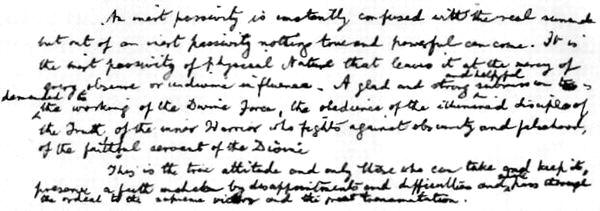 An inert passivity is constantly confused with the real surrende
but out of an inert passivity nothing true and powerful can come. It is
the inert passivity of physical Nature that leaves it at the mercy of
every obscure or undivine influence. A glad and strong and helpful submission is
demanded to the working of the Divine Force, the obedience of the illumined disciple of
the Truth, of the inner Warrior who fights against obscurity and falsehood,
of the faithful servant of the Divine
This is the true attitude and only those who can take and keep it,
preserve a faith unshaken by disappointments and difficulties and shall pass through
the ordeal to the supreme victory and the great transmutation.